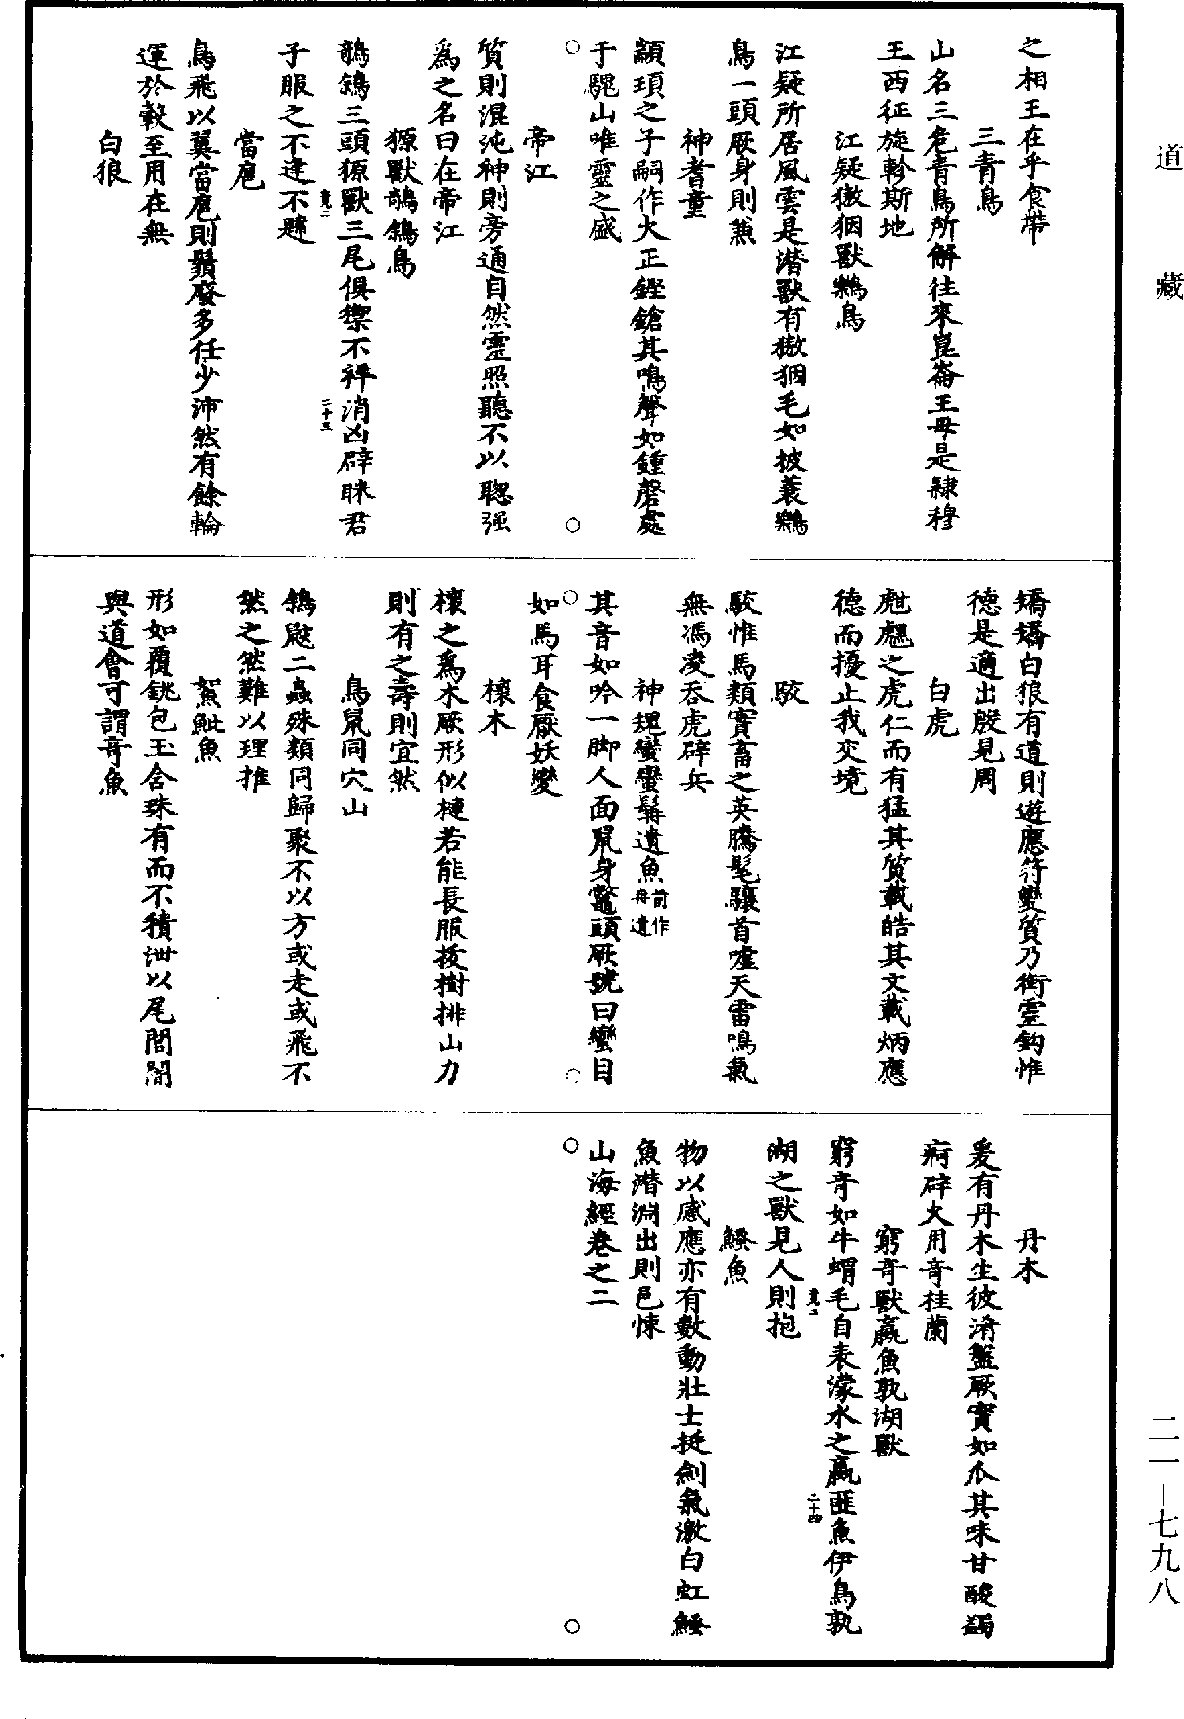 道藏
之相王在乎食帶
三青鳥
山名三危青鳥所解往來崑崙王母是隸穆
王西征旋軫斯地
江疑獓𤝱獸鶨鳥
江疑所居風雲是潛獸有獓𤝱毛如被蓑鶨
鳥一頭厥身則兼
神耆童
顓頊之子嗣作火正鏗鎗其鳴聲如鍾磬處
于騩山唯靈之盛
帝江
質則混沌神則旁通自然靈照聽不以聰强
為之名曰在帝江
獂獸鵸鵌鳥
鵸鵌三頭獂獸三尾俱禦不祥消凶辟眯君
子服之不逢不韙
當扈
鳥飛以翼當扈則鬚廢多任少沛然有餘輪
運於轂至用在無
白狼
矯矯白狼有道則遊應符變質乃銜靈鈎惟
德是適出殷見周
白虎
甝𧇭之虎仁而有猛其質載皓其文載炳應
德而擾止我交境
駮
駮惟馬類實畜之英騰髦驤首噓天雷鳴氣
無馮凌吞虎辟兵
神𩳁蠻蠻髯遺魚前作冉遺
其音如吟一脚人面鼠身鼈頭厥號曰蠻目
如馬耳食厭妖變
櫰木
櫰之為木厥形似槤若能長服拔樹排山力
則有之壽則宜然
鳥鼠同穴山
鵌鼵二蟲殊類同歸聚不以方或走或飛不
然之然難以理推
䰷魮魚
形如覆銚包玉含珠有而不積泄以尾閭闇
與道會可謂奇魚
丹木
爰有丹木生彼洧盤厥實如爪其味甘酸蠲
痾辟火用奇桂蘭
窮奇獸蠃魚孰湖獸
窮奇如牛蝟毛自表濛水之蠃匪魚伊鳥孰
湖之獸見人則抱
鰠魚
物以感應亦有數動壯士挺劍氣激白虹鰠
魚潛淵出則邑悚
山海經卷之二
二一—七九八